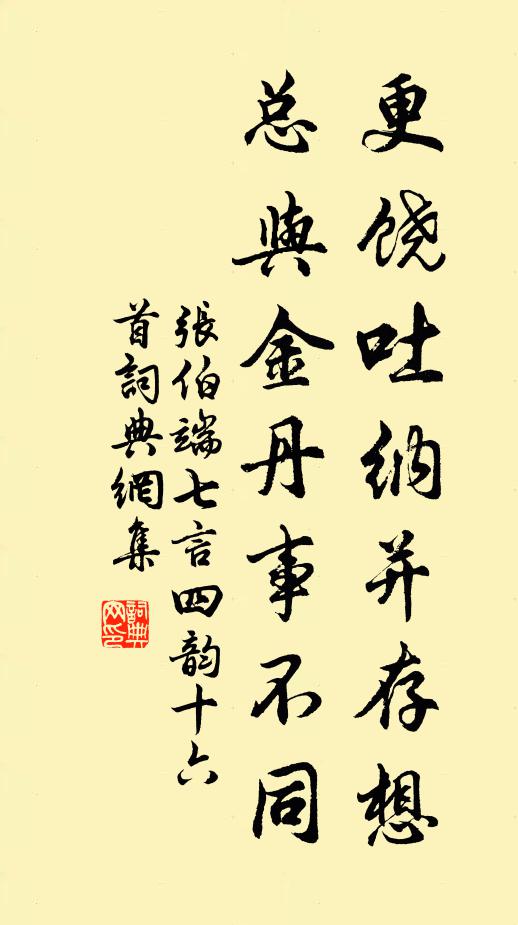 更饶吐纳并存想
总與金丹事不同
張伯端七言四韵十六
首詞典網集
詞典
网印